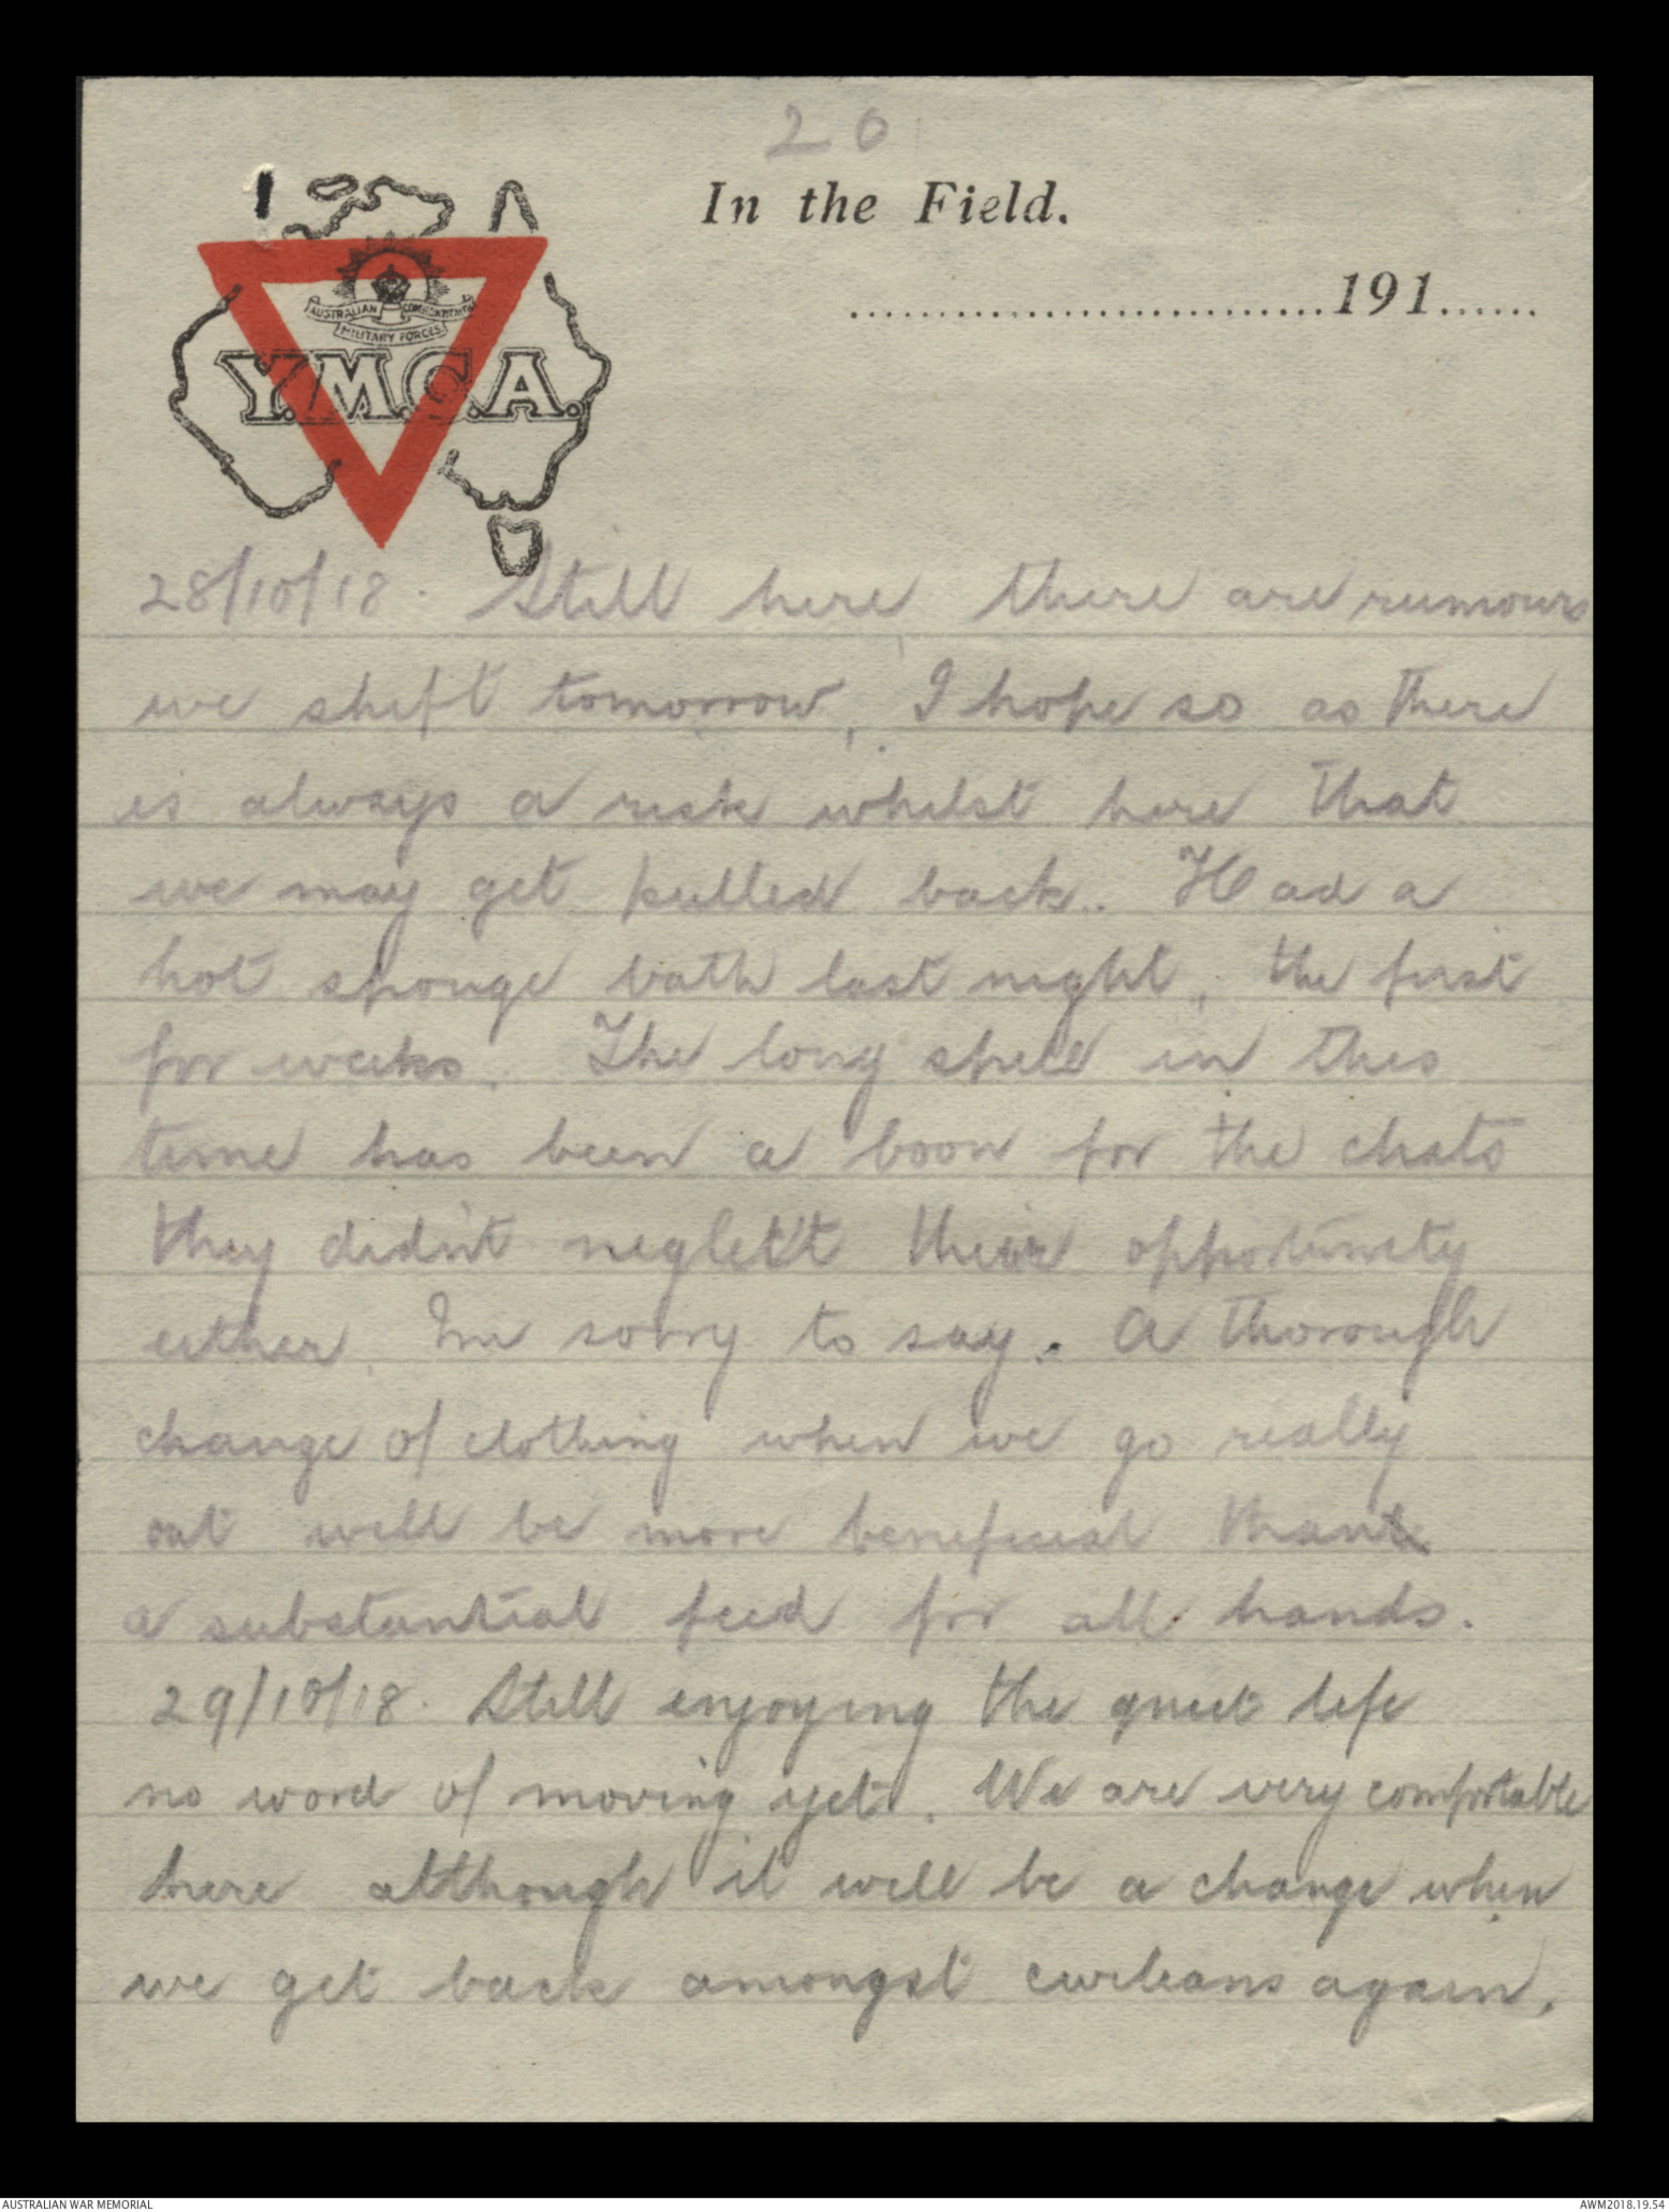 20
In the Field.
AUSTRALIAN COMMONWEALTH
MILITARY FORCES
Y.M.C.A.
..............................191......
28/10/18. Still here, there are rumours
we shift tomorrow, I hope so as there
is always a risk whilst here that
we may get pulled back. Had a
hot sponge bath last night, the first
for weeks. The long spell in this
time has been a boon for the chats
they didn't neglect their opportunity
either, I'm sorry to say. A thorough
change of clothing when we go really
out will be more beneficial than
a substantial feed for all hands.
29/10/18. Still enjoying the quiet life
no word of moving yet. We are very comfortable
here although it will be a change when
we get back amongst civilians again.
AUSTRALIAN WAR MEMORIAL
AWM2018.19.54